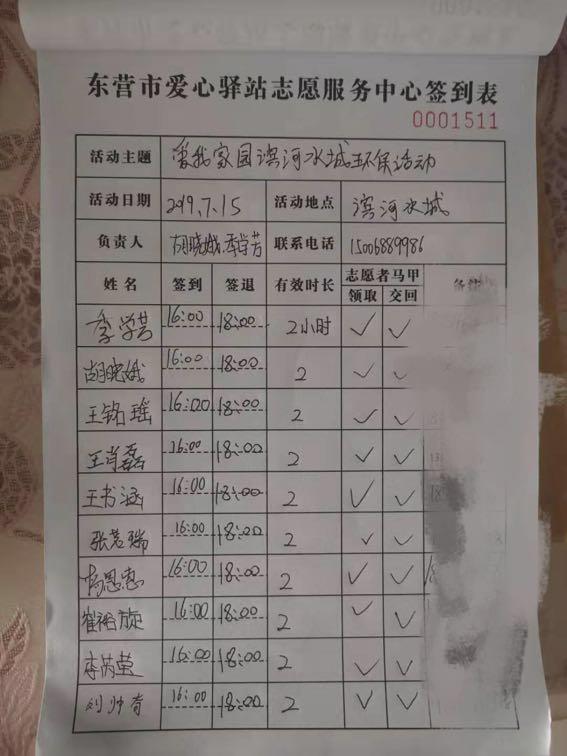 东营市爱心驿站志愿服务中心签到表
0001511
活动主题 爱我家园滨河水城环保活动
活动日期 2019.7.15 活动地点 滨河水城
负责人 胡晓娥.季学芳 联系电话 15006889986
姓名 签到 签退 有效时长 志愿者马甲 备注
领取 交回
季学芳 16:00 18:00 2小时 ✓ ✓
胡晓娥 16:00 18:00 2 ✓ ✓
王铭瑶 16:00 18:00 2 ✓ ✓
王肖磊 16:00 18:00 2 ✓ ✓
王书涵 16:00 18:00 2 ✓ ✓
张若瑞 16:00 18:00 2 ✓ ✓
杨恩惠 16:00 18:00 2 ✓ ✓
崔裕旋 16:00 18:00 2 ✓ ✓
李芮莹 16:00 18:00 2 ✓ ✓
刘帅奇 16:00 18:00 2 ✓ ✓